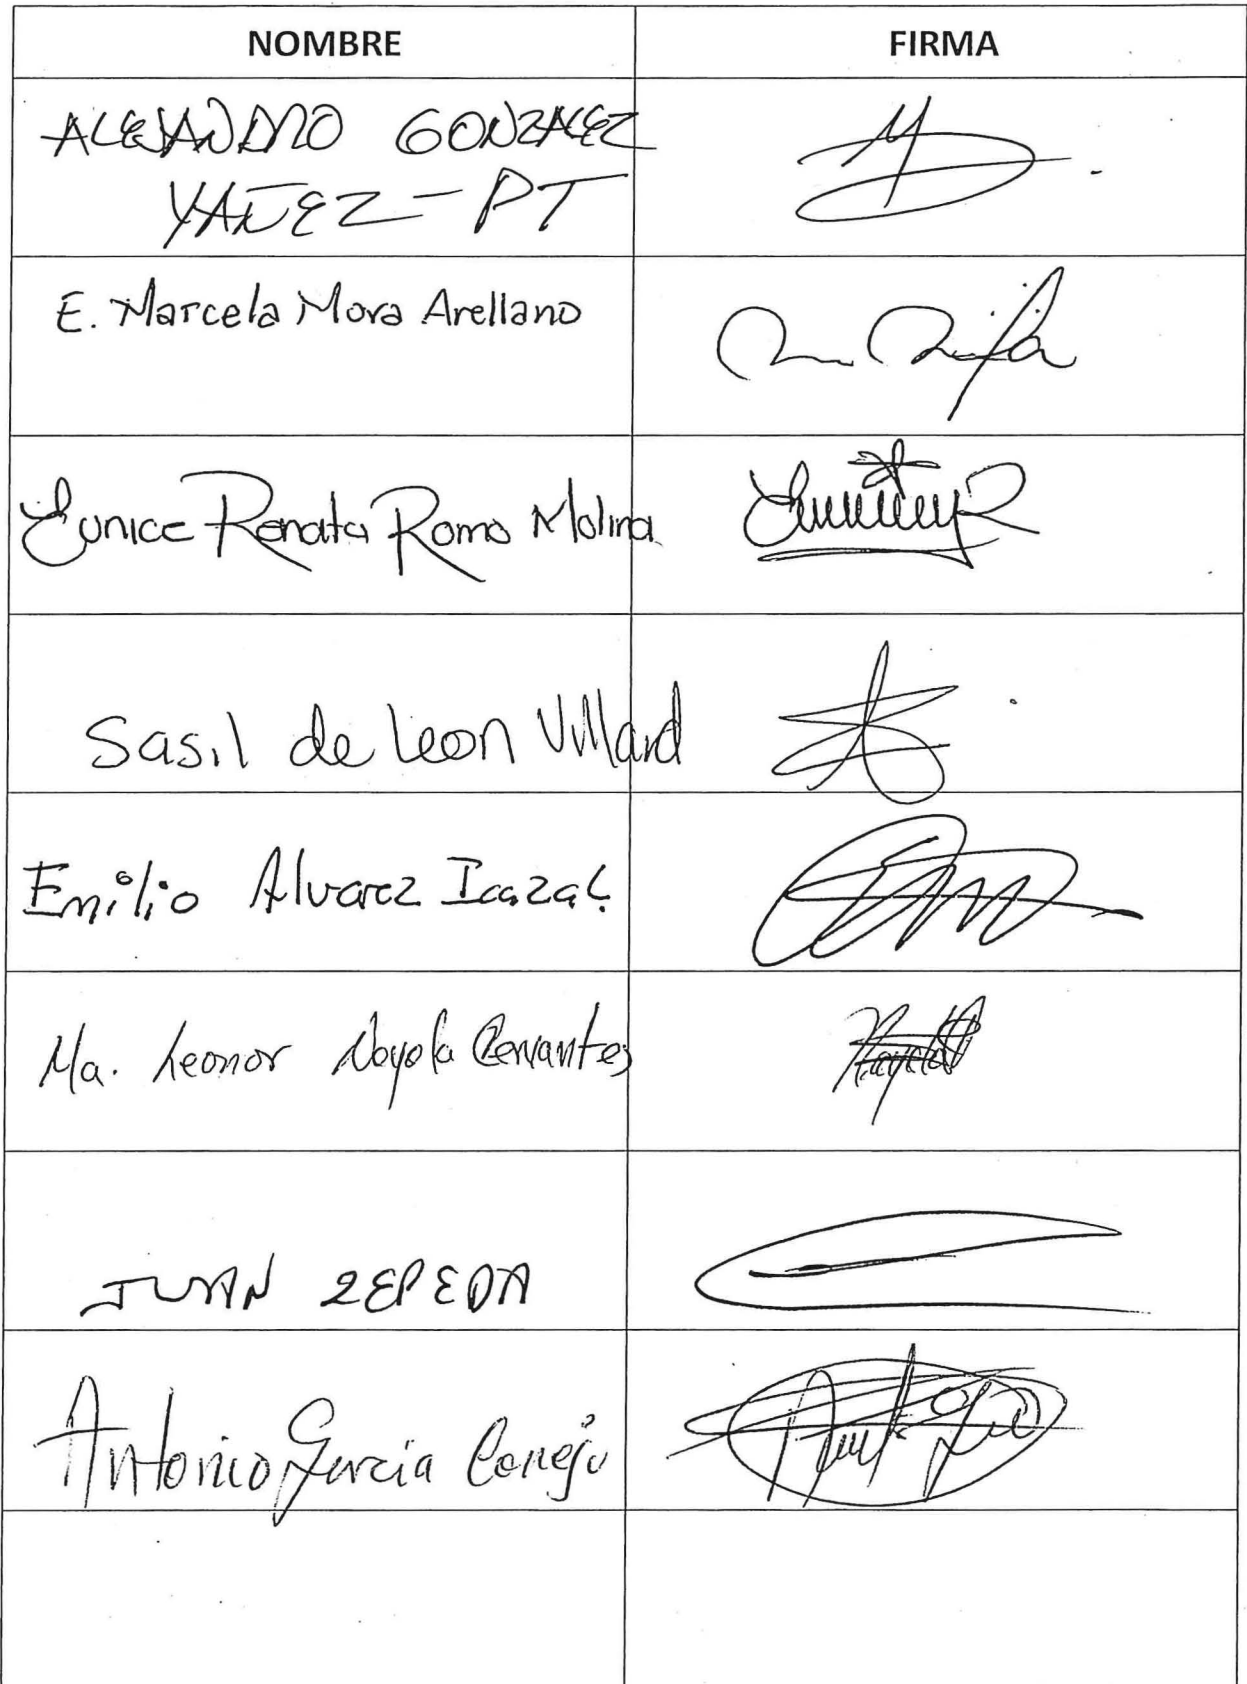 NOMBRE FIRMA
ALEJANDRO GONZALEZ
YAÑEZ - PT
E. Marcela Mora Arellano
Eunice Renata Romo Molina
Sasil de Leon Villard
Emilio Alvarez Icaza L.
Ma. Leonor Noyola Cervantes
JUAN ZEPEDA
Antonio García Conejo